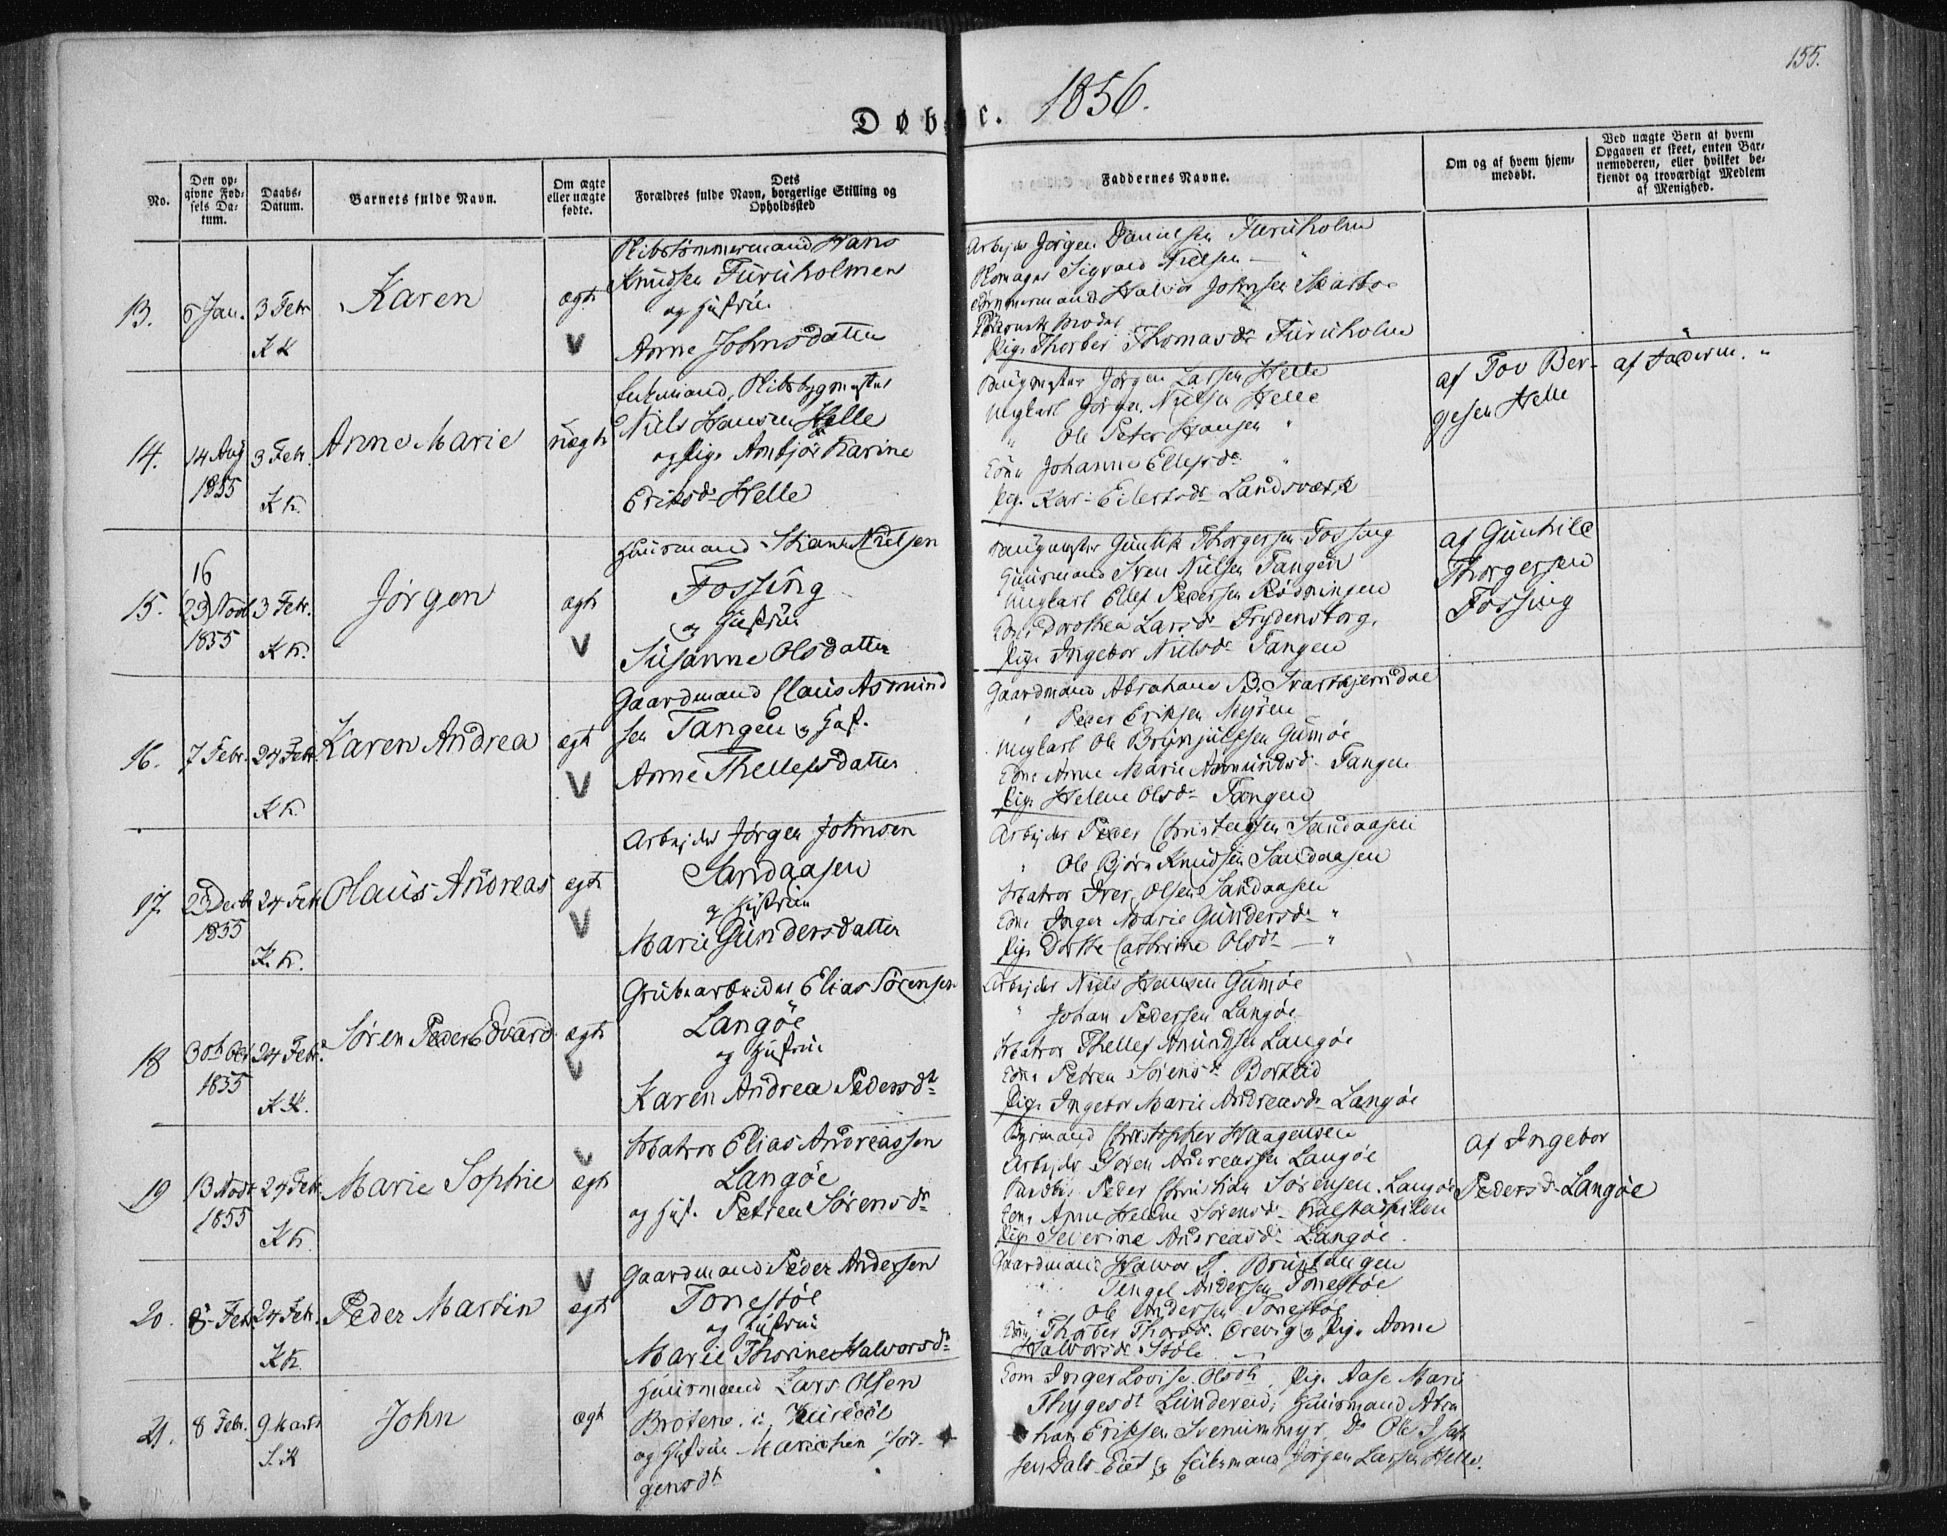 155.
Døbte. 1856.
No.
Den opgivne Fødsels Datum.
Daabs-Datum.
Barnets fulde Navn.
Om ægte eller uægte fødte.
Dets Forældres fulde Navn, borgerlige Stilling og Opholdssted
Faddernes Navne.
Om og af hvem hjemmedøbt.
Ved uægte Børn at hvem Opgaven er skeet, enten Barnemoderen, eller hvilket bekjendt og troværdigt Medlem af Menighed.
13.
6 Jan.
3 Febr
KK
Karen
ægte
Skibstømmermand Hans
Knudsen Furuholmen
og Hustrue
Anne Johnsdatter
Arbejder Jørgen Danielsen Furuholm
Sigvard Nielsen
Tømmermand Halvor Johnsen
Pige Thorber Thomasdr Furuholm
14.
14 Aug
1855
3 Febr.
KK.
Anne Marie
uægte
Enkemand, Skibsbygmester
Niels Hansen Helle
og Pige Anbjør Karine
Eriksdr Helle
Jørgen Larsen Helle
Ungkarl Jørgen Nielsen Helle
" Ole Peter Hansen "
Kone Johanne Ellefsdr
Pige Kari Eilertsdr Landsværk
af Tov Ber-
gesen Helle
af Faderen.
15.
16
(23) Novb
1855
3 Febr.
KK.
Jørgen
ægte
Huusmand Nielsen
Fossing
og Hustrue
Susanne Olsdatter
Thorgersen Fossing
Huusmand Sven Nielsen Tangen
Ungkarl Ellef Pedersen Rødningen
Kone Dorothea Larsdr Frydensborg.
Pige Ingebor Nielsdr Tangen
af Gunhild
Thorgersen
Fossing
16.
7 Febr.
24 Febr.
KK.
Karen Andrea
ægte
Gaardmand Claus Asmund
sen Tangen og Hust.
Anne Thellefsdatter
Gaardmand Abraham
" Peder Eriksen Myren
Ungkarl Ole Brynjulfsen Gumøe
Kone Anne Marie Tangen
Pige Helene Olsdr Tangen
17.
23 Decbr
1855
24 Febr
KK.
Olaus Andreas
ægte
Arbejder Jørgen Johnsen
Sandaasen
og Hustrue
Marie Gundersdatter
Arbejder Peder Christensen Sandaasen
" Ole Bjørn Knudsen Sandaasen
Matros Iver Olsen Sandaasen
Kone Inger Marie Gundersdr "
Pige Dorthe Cathrine Olsdr — "
18
3 Octbr
1855
24 Febr.
KK.
Søren Peder Edvard
ægte
Grubearbeider Elias Sørensen
Langøe
og Hustrue
Karen Andrea Pedersdr
Arbejder Niels Hansen Gumøe
" Johan Pedersen Langøe
Matros Thellef Amundsen Langøe
Kone Petrea Sørensdr
Pige Ingebor Marie Andreasdr Langøe
19
13 Novbr
1855
24 Febr
KK.
Marie Sophie
ægte
Matros Elias Andreassen
Langøe
og Hust. Petrea Sørensdr
Christopher Haagensen
Arbejder Søren Andreassen Langøe
Peder Christian Sørensen. Langøe
Kone Anne Helene Sørensdr
Pige Severine Andreasdr Langøe.
af Ingebor
Pedersdr Langøe
20.
8 Febr
24 Febr.
KK.
Peder Martin
ægte
Gaardmand Peder Andersen
Tonestøl
og Hustrue
Marie Thorine Halvorsdr
Gaardmand Halvor Bruntangen
" Tengel Andersen Tonestøl
" Ole Andersen Tonestøl
Kone Thorber Thorsdr. Ørevig og Pige Anne
Halvorsdr Støle
21.
8 Febr.
9 Marts
S.K
John
ægt
Huusmand Lars Olsen
Broten i
og Hustrue Marichen Jør-
gensdr
Kone Inger Lovise Olsdr, Pige Aase Marie
Thygesdr Lundereid, Huusmand Abra
ham Eriksen Svenummyr, Do Ole Isak
sen Dals-Eiet og Enkemand Jørgen Larsen Helle.